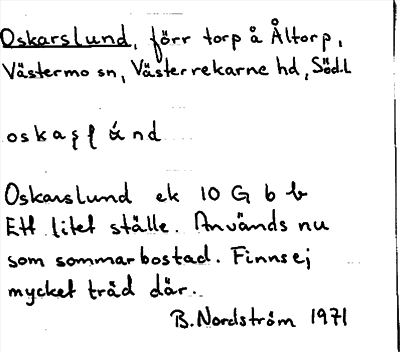 Oskarslund, förr torp å Åltorp,
Västermo sn, Västerrekarne hd, Södl
Oskarslund ek 10 G b b
Ett litet ställe. Används nu
som sommarbostad. Finns ej
mycket träd där.
B. Nordström 1971